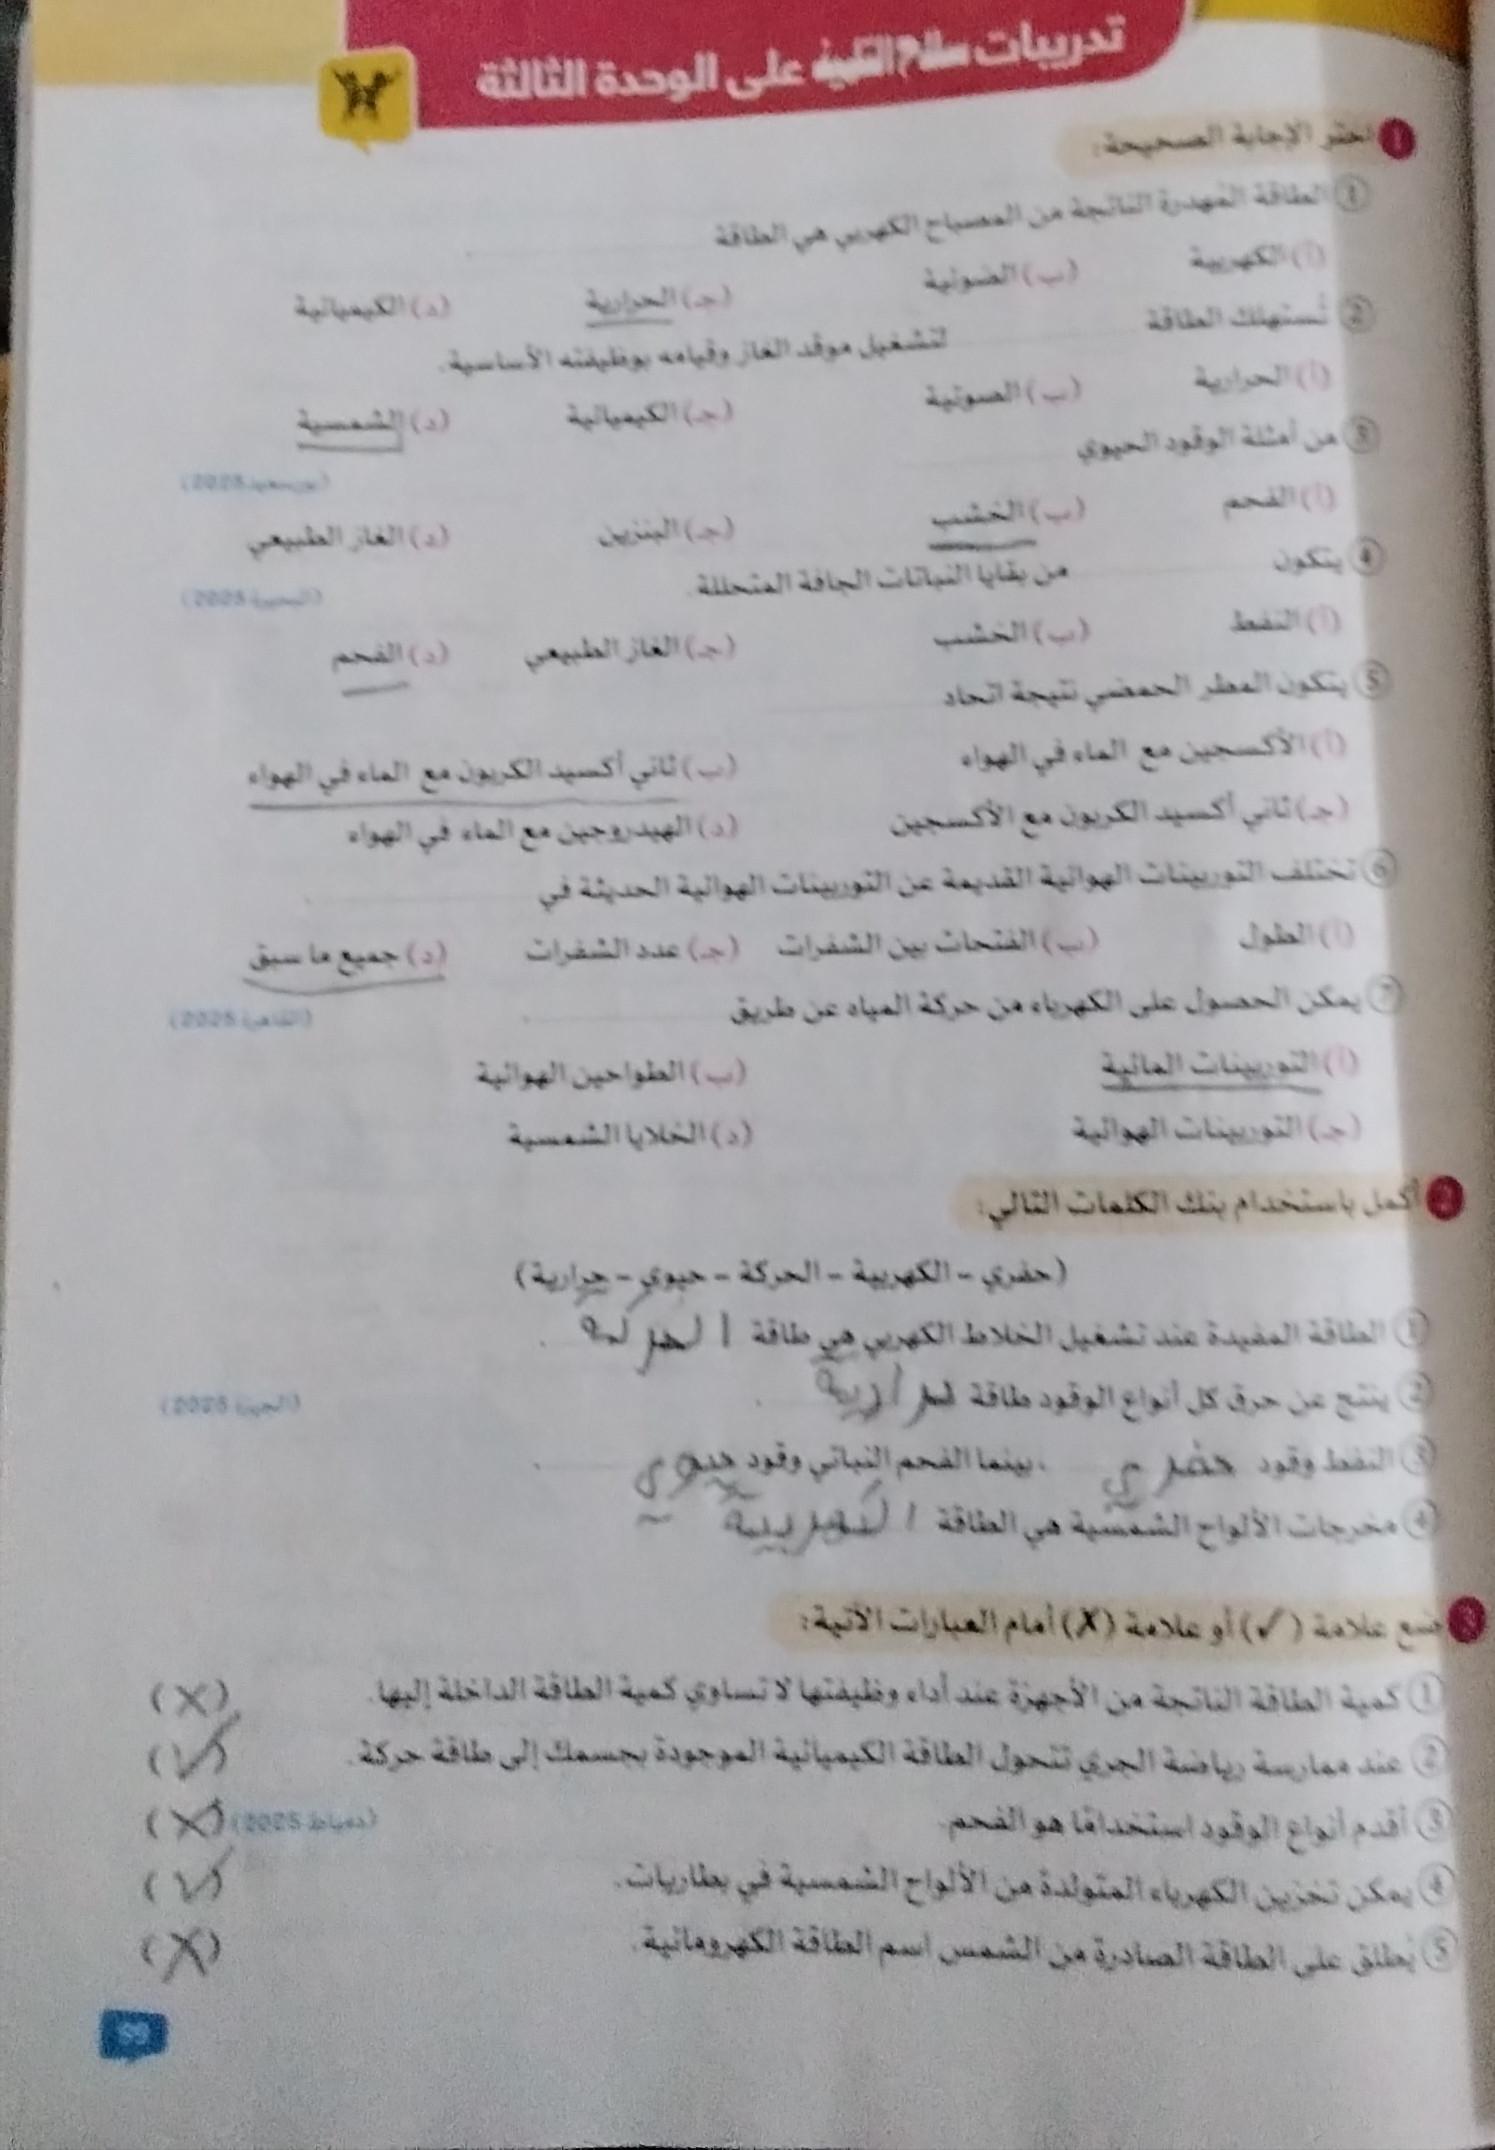 تدريبات سلاح التلميذ على الوحدة الثالثة
1 اختر الإجابة الصحيحة:
1 الطاقة المهدرة الناتجة من المصباح الكهربي هي الطاقة
(أ) الكهربية (ب) الضوئية (جـ) الحرارية (د) الكيميائية
2 تُستهلك الطاقة لتشغيل موقد الغاز وقيامه بوظيفته الأساسية.
(أ) الحرارية (ب) الصوتية (جـ) الكيميائية (د) الشمسية
3 من أمثلة الوقود الحيوي (بورسعيد 2025)
(أ) الفحم (ب) الخشب (جـ) البنزين (د) الغاز الطبيعي
4 يتكون من بقايا النباتات الجافة المتحللة. (البحيرة 2025)
(أ) النفط (ب) الخشب (جـ) الغاز الطبيعي (د) الفحم
5 يتكون المطر الحمضي نتيجة اتحاد
(أ) الأكسجين مع الماء في الهواء (ب) ثاني أكسيد الكربون مع الماء في الهواء
(جـ) ثاني أكسيد الكربون مع الأكسجين (د) الهيدروجين مع الماء في الهواء
6 تختلف التوربينات الهوائية القديمة عن التوربينات الهوائية الحديثة في
(أ) الطول (ب) الفتحات بين الشفرات (جـ) عدد الشفرات (د) جميع ما سبق
7 يمكن الحصول على الكهرباء من حركة المياه عن طريق (القاهرة 2025)
(أ) التوربينات المائية (ب) الطواحين الهوائية
(جـ) التوربينات الهوائية (د) الخلايا الشمسية
2 أكمل باستخدام بنك الكلمات التالي:
(حفري - الكهربية - الحركة - حيوي - حرارية)
1 الطاقة المفيدة عند تشغيل الخلاط الكهربي هي طاقة الحركة
2 ينتج عن حرق كل أنواع الوقود طاقة حرارية (الجيزة 2025)
3 النفط وقود حفري ، بينما الفحم النباتي وقود حيوي
4 مخرجات الألواح الشمسية هي الطاقة الكهربية
3 ضع علامة (✓) أو علامة (X) أمام العبارات الآتية:
1 كمية الطاقة الناتجة من الأجهزة عند أداء وظيفتها لا تساوي كمية الطاقة الداخلة إليها. (X)
2 عند ممارسة رياضة الجري تتحول الطاقة الكيميائية الموجودة بجسمك إلى طاقة حركة. (✓)
3 أقدم أنواع الوقود استخدامًا هو الفحم. (دمياط 2025) (X)
4 يمكن تخزين الكهرباء المتولدة من الألواح الشمسية في بطاريات. (✓)
5 يُطلق على الطاقة الصادرة من الشمس اسم الطاقة الكهرومائية. (X)